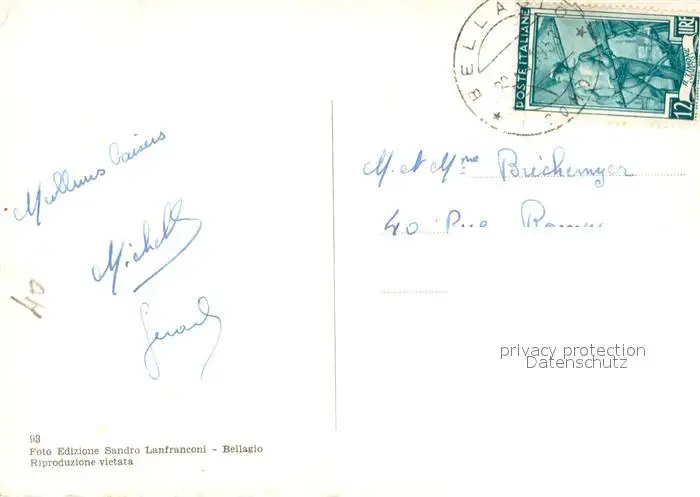 BELLA
POSTE ITALIANE
12
LIRE
IL TIMONE
Meilleurs baisers
Michel
Gerard
M. et Mme Bréchemyer
40 Rue
privacy protection
Datenschutz
93
Foto Edizione Sandro Lanfranconi - Bellagio
Riproduzione vietata